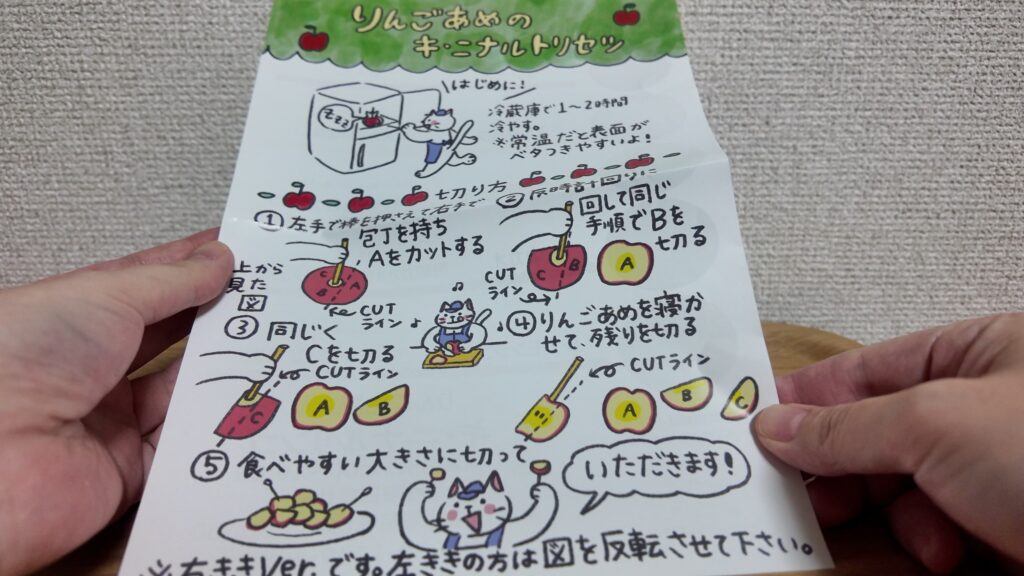 りんごあめの
キ・ニナルトリセツ
はじめに!
zzz
冷蔵庫で1〜2時間
冷やす。
※常温だと表面が
ベタつきやすいよ!
切り方
①左手で棒を押さえて右手で
包丁を持ち
Aをカットする
C
B
A
上から
見た
図
CUT
ライン
②反時計回りに
回して同じ
手順でBを
切る
C
B
A
CUT
ライン
③同じく
Cを切る
CUTライン
C
A
B
④りんごあめを寝か
せて、残りを切る
CUTライン
A
B
C
⑤食べやすい大きさに切って
いただきます!
※右ききVer.です。左ききの方は図を反転させて下さい。